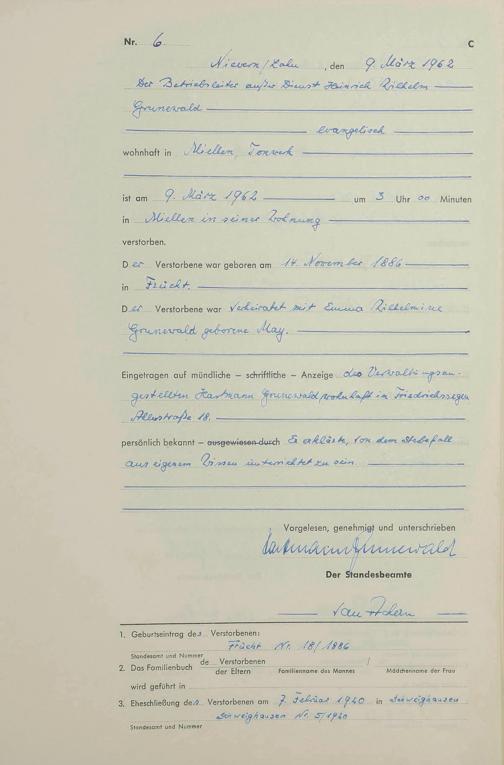 Nr. 6 C
Nievern/Lahn, den 9. März 1962
Der Betriebsleiter außer Dienst Heinrich Wilhelm
Grunewald
evangelisch
wohnhaft in Miellen, Tonwerk
ist am 9. März 1962 um 3 Uhr 00 Minuten
in Miellen in seiner Wohnung
verstorben.
Der Verstorbene war geboren am 14. November 1886
in Frücht.
Der Verstorbene war verheiratet mit Emma Wilhelmine
Grunewald geborene May.
Eingetragen auf mündliche – schriftliche – Anzeige des Verwaltungsan-
gestellten Hartmann Grunewald, wohnhaft in Friedrichssegen
Ahlerstraße 18.
persönlich bekannt – ausgewiesen durch Er erklärte, von dem Sterbefall
aus eigenem Wissen unterrichtet zu sein
Vorgelesen, genehmigt und unterschrieben
Hartmann Grunewald
Der Standesbeamte
1. Geburtseintrag des Verstorbenen:
Frücht Nr. 18/1886
Standesamt und Nummer
2. Das Familienbuch de Verstorbenen / der Eltern
Familienname des Mannes Mädchenname der Frau
wird geführt in
3. Eheschließung des Verstorbenen am 7. Februar 1920 in Schweighausen
Schweighausen Nr. 5/1920
Standesamt und Nummer